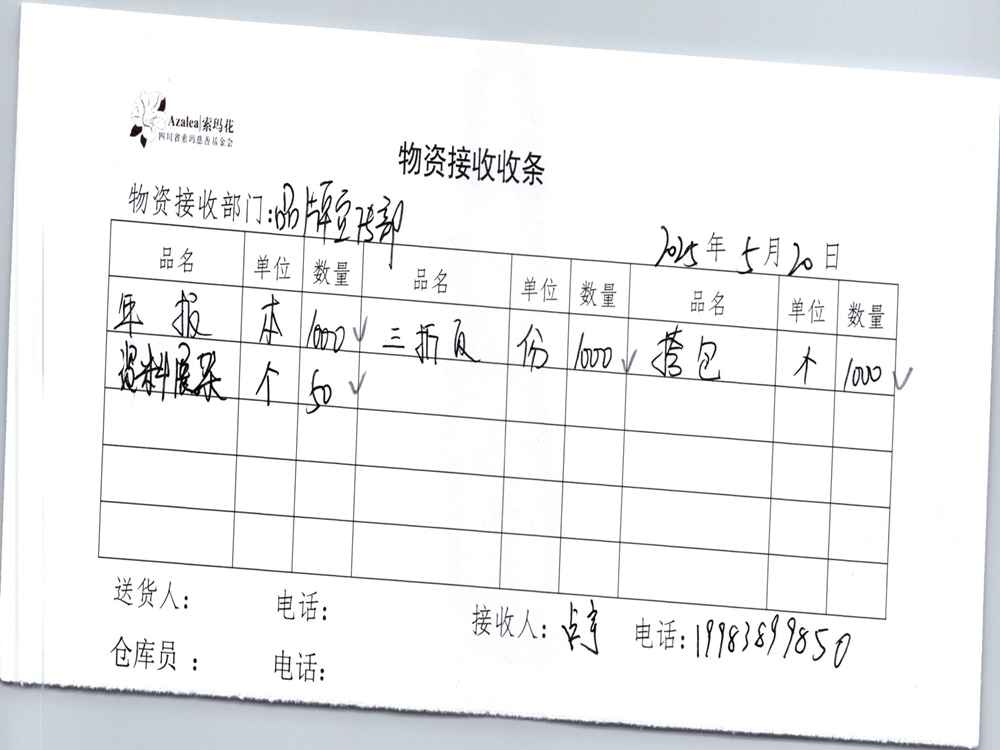 Azalea|索玛花
四川省索玛慈善基金会
物资接收收条
物资接收部门:品牌宣传部
2025年5月20日
品名 单位 数量 品名 单位 数量 品名 单位 数量
年报 本 1000 ✓ 三折页 份 1000 ✓ 挎包 个 1000 ✓
资料展架 个 50 ✓
送货人: 电话: 接收人: 电话:19983899850
仓库员 : 电话: